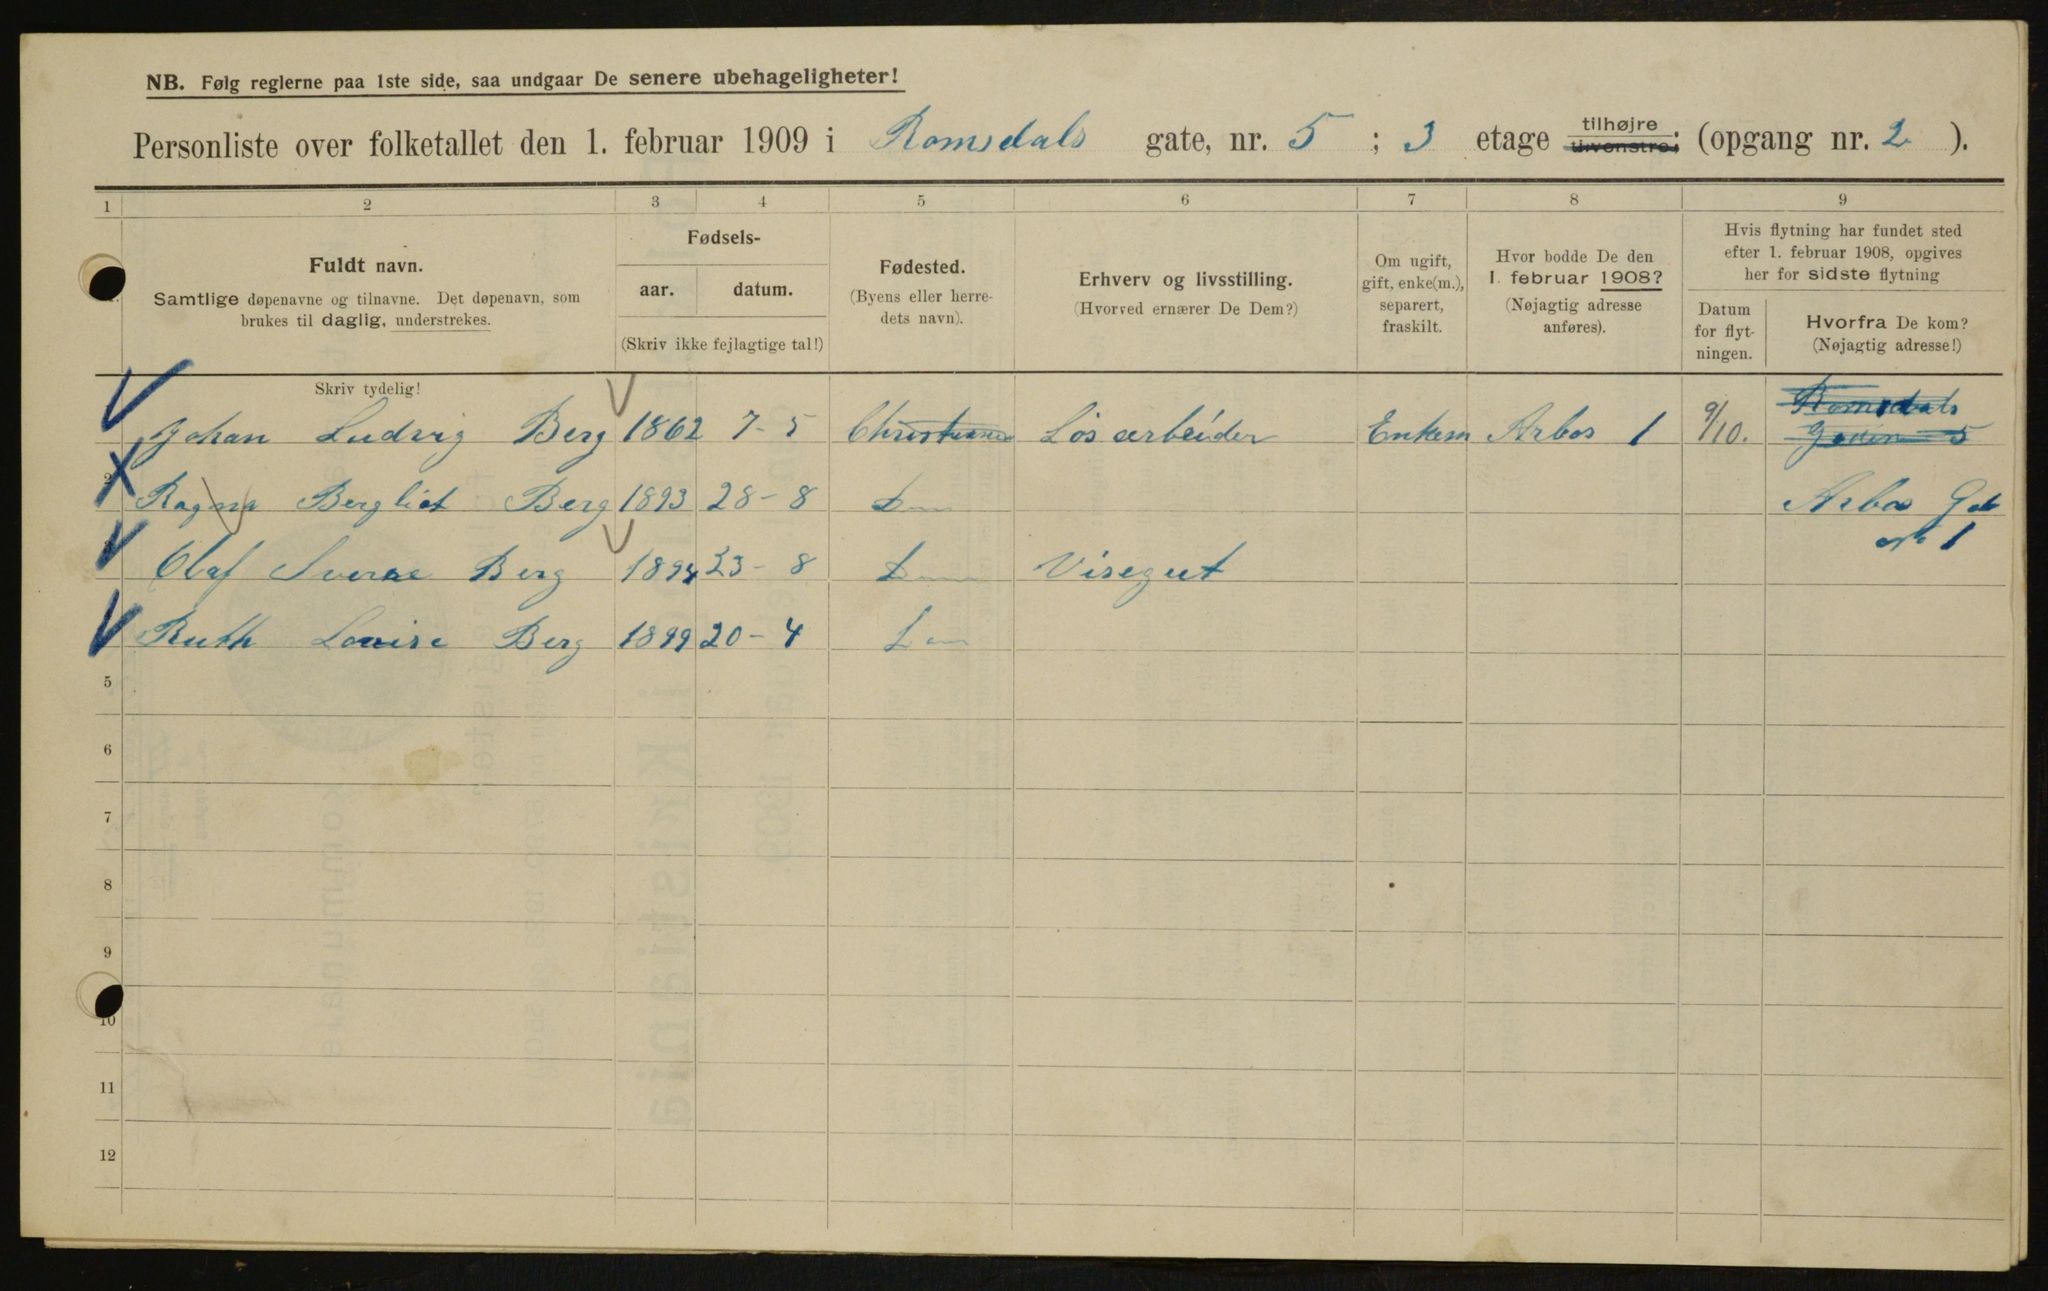 NB. Følg reglerne paa 1ste side, saa undgaar De senere ubehageligheter!
Personliste over folketallet den 1. februar 1909 i Romsdals gate, nr. 5 ; 3 etage tilhøjre tilvenstre; (opgang nr. 2 ).
1 2 3 4 5 6 7 8 9
Fuldt navn.
Samtlige døpenavne og tilnavne. Det døpenavn, som
brukes til daglig, understrekes.
Fødsels-
aar. datum.
(Skriv ikke fejlagtige tal!)
Fødested.
(Byens eller herre-
dets navn).
Erhverv og livsstilling.
(Hvorved ernærer De Dem?)
Om ugift,
gift, enke(m.),
separert,
fraskilt.
Hvor bodde De den
1. februar 1908?
(Nøjagtig adresse
anføres).
Hvis flytning har fundet sted
efter 1. februar 1908, opgives
her for sidste flytning
Datum
for flyt-
ningen.
Hvorfra De kom?
(Nøjagtig adresse!)
Skriv tydelig!
Johan Ludvig Berg 1862 7-5 Løsarbeider Enkem Arbos 1 9/10. Romsdals
5
2 Ragna Bergliot Berg 1893 28-8 Arbos
1
Olaf Sverre Berg 1894 23-8 Visegut
Ruth Lovise Berg 1899 20-4
5
6
7
8
9
10
11
12